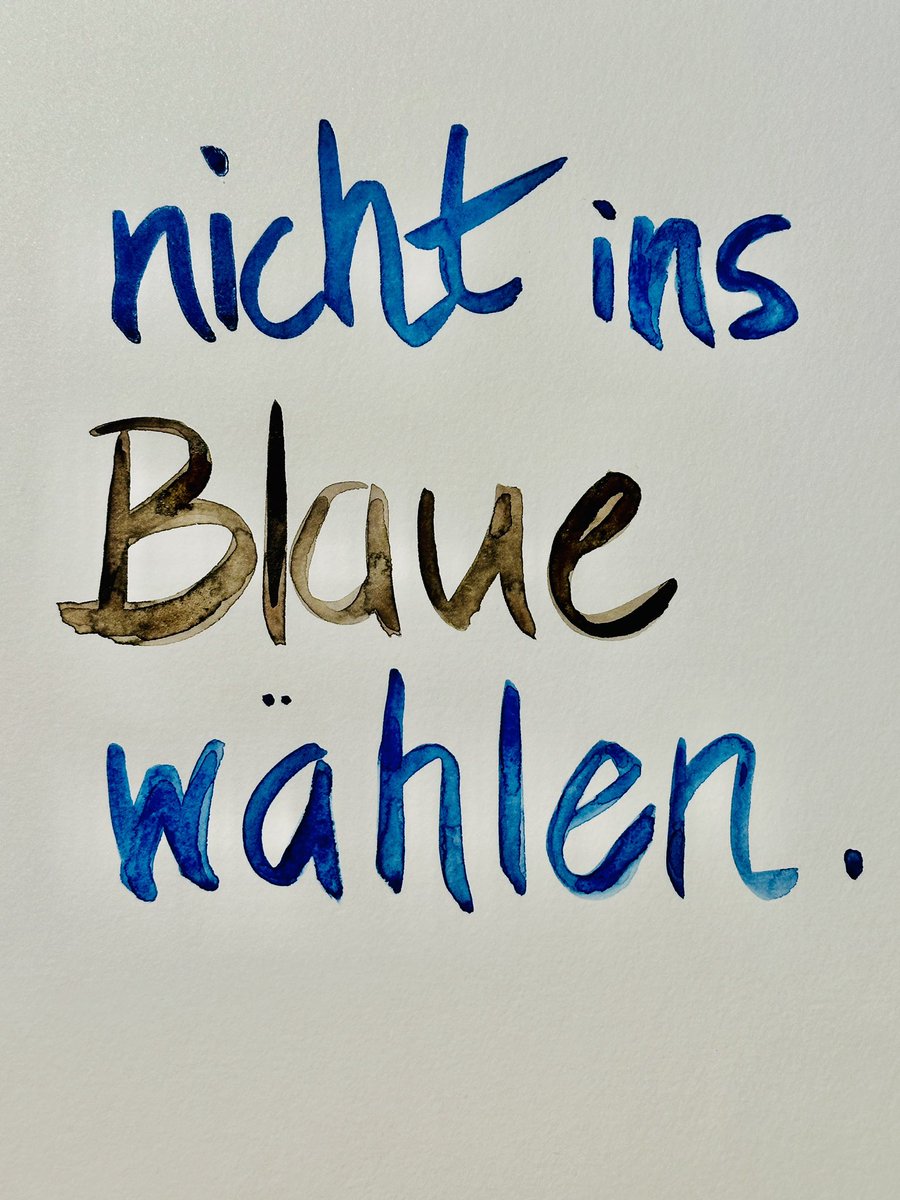 nicht ins
Blaue
wählen.